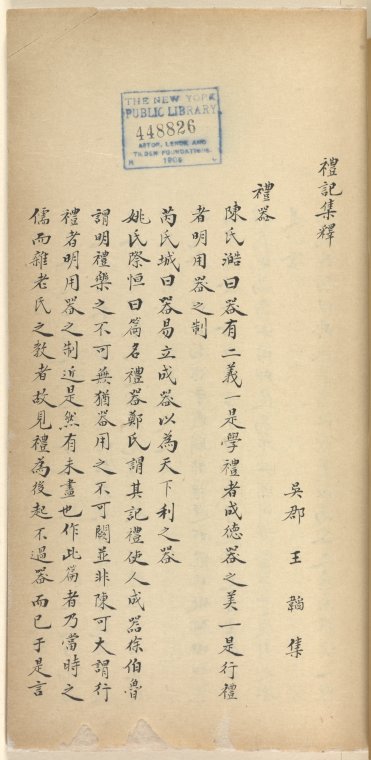 禮記集釋
吳郡 王韜集
禮器
陳氏澔曰器有二義一是學禮者成德器之美一是行禮
者明用器之制
芮氏城曰器易立成器以為天下利之器
姚氏際恒曰篇名禮器鄭氏謂其記禮使人成器徐伯魯
謂明禮樂之不可無猶器用之不可闕並非陳可大謂行
禮者明用器之制近是然有未盡也作此篇者乃當時之
儒而雜老氏之教者故見禮為後起不過器而已于是言
THE NEW YORK
PUBLIC LIBRARY
448826
ASTOR, LENOX AND
TILDEN FOUNDATIONS.
R 1909 L